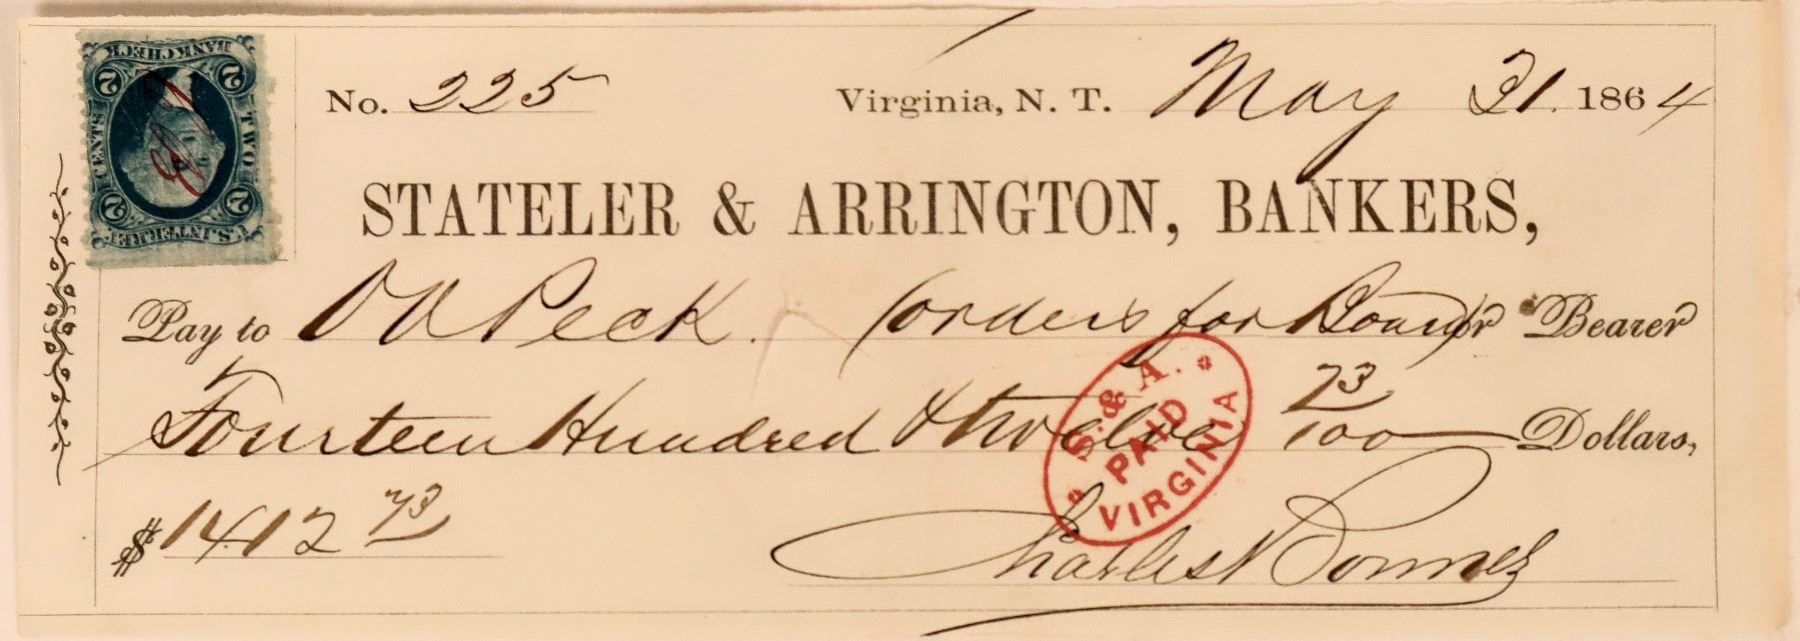 No. 225 Virginia, N. T. May 31. 1864
STATELER & ARRINGTON, BANKERS,
Pay to O V Peck. (orders for Board) or Bearer
Fourteen Hundred & twelve 73/100 Dollars,
$1412 73
Charles Bonner
BANK CHECK
2 2
CENTS TWO
2 2
U.S. INTER. REV.
S. & A.
PAID
VIRGINIA